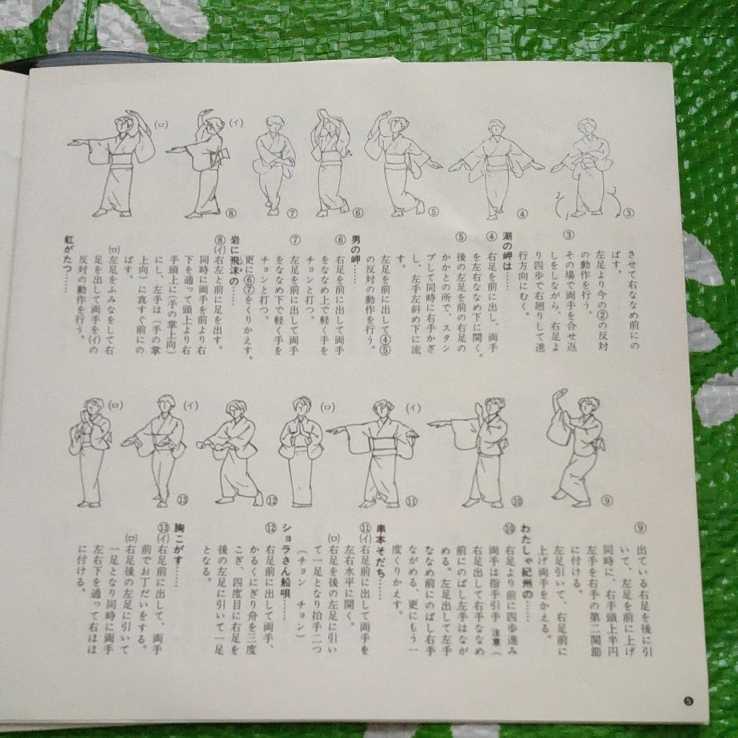 させて右ななめ前にの
ばす。
左足より今の②の反対
の動作を行う。
③
その場で両手を合せ返
しをしながら、右足よ
り四歩で右廻りして進
行方向にむく。
潮の岬は……
④
右足を前に出し、両手
を左右ななめ下に開く。
⑤
後の左足を前の右足の
かかとの所で、スタン
プして同時に右手かざ
し、左手左斜め下に流
す。
左足を前に出して④⑤
の反対の動作を行う。
男の岬……
⑥
右足を前に出して両手
をななめ上で軽く手を
チョンと打つ。
⑦
左足を前に出して両手
をななめ下で軽く手を
チョンと打つ。
更に⑥⑦をくりかえす。
岩に飛沫の……
⑧(イ)右左と前に足を出す。
同時に両手を前より右
下を通って頭上より右
手頭上に(手の掌上向)
にし、左手は(手の掌
上向)に真すぐ前にの
ばす。
(ロ)左足をふみなをして右
足を出して両手を(イ)の
反対の動作を行う。
虹がたつ……
(ロ)
(イ)
⑧
⑦
⑥
⑤
④
③
(ロ)
(イ)
⑬
⑫
(ロ)
(イ)
⑪
⑩
⑨
⑨
出ている右足を後に引
いて、左足を前に上げ
同時に、右手頭上半円
左手を右手の第二関節
に付ける。
左足引いて、右足前に
上げ両手をかえる。
わたしゃ紀州の……
⑩
右足より前に四歩進み
両手は指手引手 注意(
右足出して右手ななめ
前にのばし左手はなが
める。左足出して左手
ななめ前にのばし右手
ながめる、更にもう一
度くりかえす。
串本そだち……
⑪(イ)右足前に出して両手を
左右水平に開く。
(ロ)右足を後の左足に引い
て一足となり拍手二つ
(チョン チョン)
ショラさん船唄……
⑫
右足前に出して両手、
かるくにぎり舟を三度
こぎ、四度目に右足を
後の左足に引いて一足
となる。
胸こがす……
⑬(イ)右足前に出して、両手
前でお丁だいをする。
(ロ)右足後の左足に引いて
一足となり同時に両手
左右下を通って右ほほ
に付ける。
5